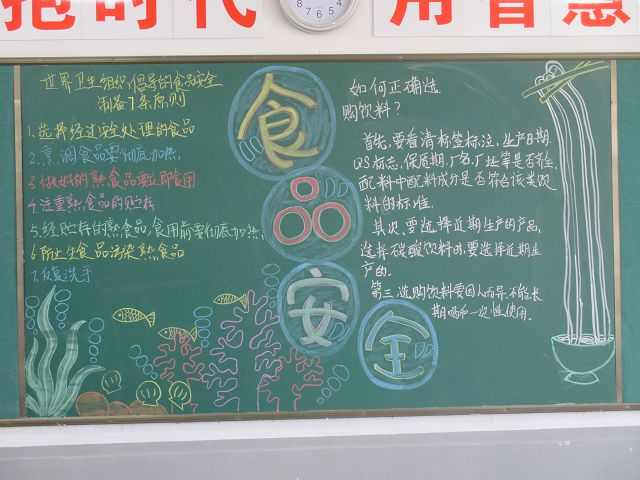 抱时代
用智慧
世界卫生组织倡导的食品安全
制备7条原则
1.选择经过安全处理的食品
2.烹调食品要彻底加热
3.做好的熟食品要立即食用
4.注重熟食品的贮存
5.经贮存的熟食品,食用前要彻底加热.
6.防止生食品污染熟食品
7.反复洗手
食
品
安
全
如何正确选
购饮料?
首先,要看清标签标注,生产日期
QS标志,保质期,厂名,厂址等是否齐全,
配料中配料成分是否符合该类饮
料的标准.
其次.要选择近期生产的产品,
选择碳酸饮料时,要选择近期生
产的.
第三 选购饮料要因人而异.不能长
期喝 一次性使用.